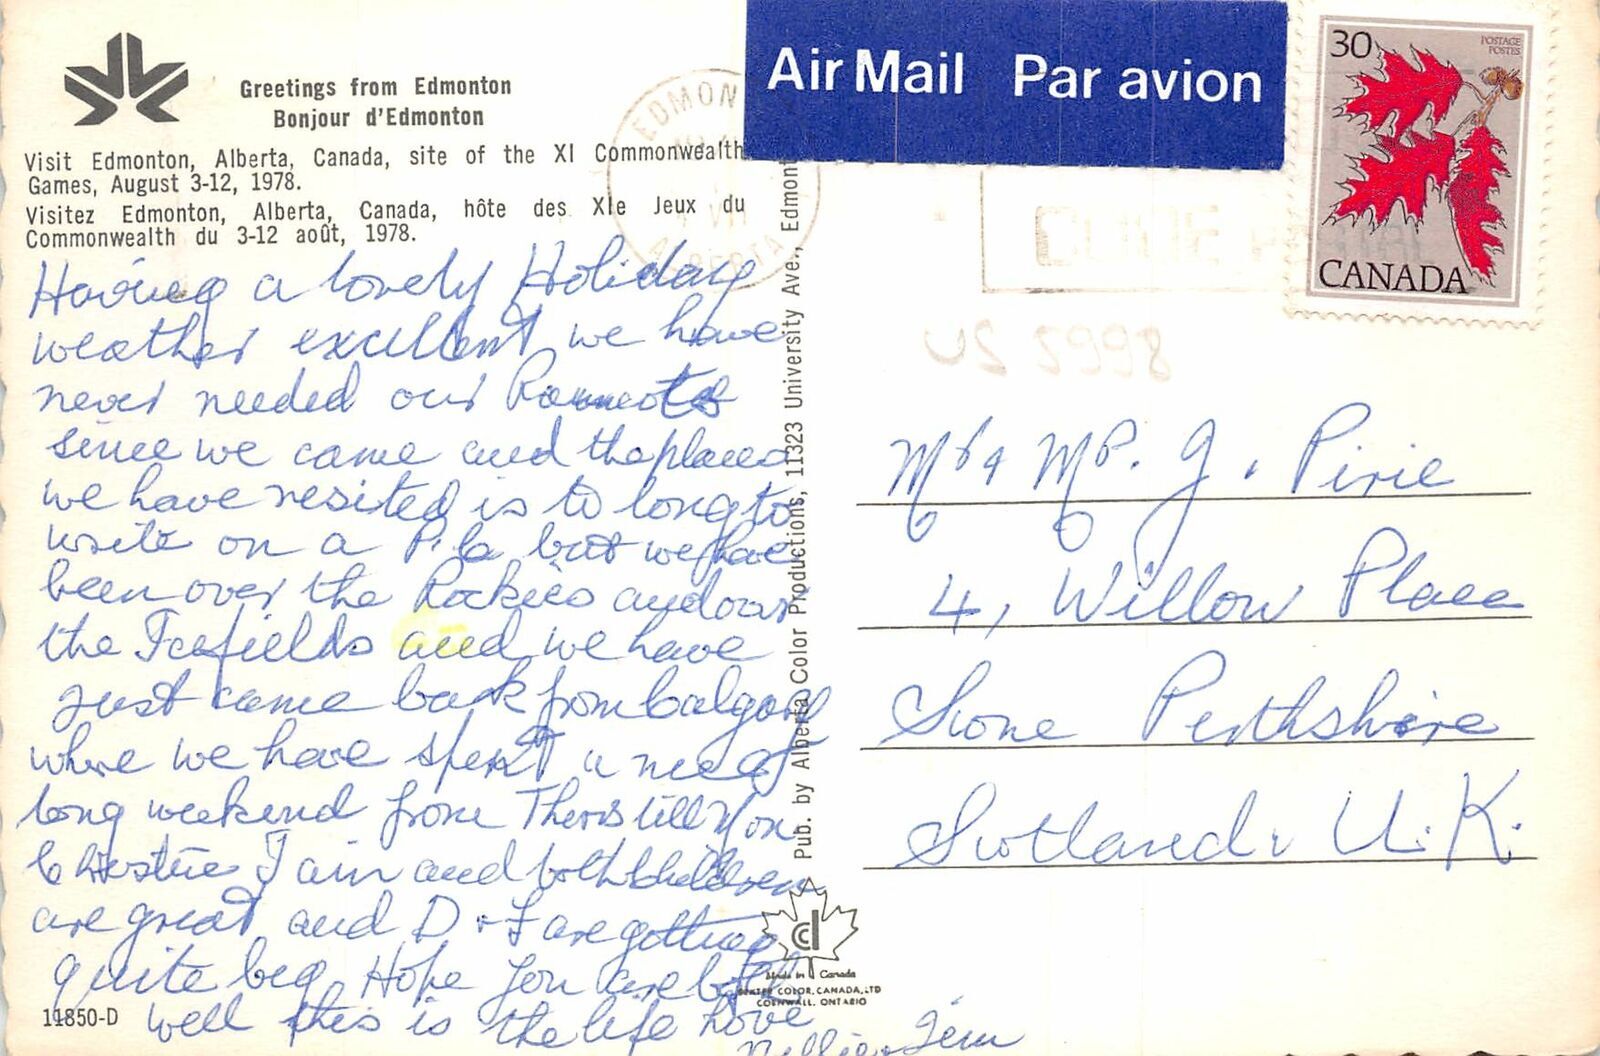 Greetings from Edmonton
Bonjour d'Edmonton
Visit Edmonton, Alberta, Canada, site of the XI Commonwealth
Games, August 3-12, 1978.
Visitez Edmonton, Alberta, Canada, hôte des XIe Jeux du
Commonwealth du 3-12 août, 1978.
Having a lovely Holiday
weather excellent we have
never needed our
since we came and the places
we have vesited is to long to
write on a P.C. but we have
been over the Rockies and over
the Icefields and we have
just came back from Calgary
where we have spent a
long weekend from Thurs till Mon
Christine Iain and both children
are great and D & F are getting
quite big Hope you are both
well this is the life Love
Nellie & Jim
11850-D
Pub. by Alberta Color Productions, 11323 University Ave., Edmont
Made in Canada
COLOR, CANADA, LTD
CORNWALL, ONTARIO
Air Mail Par avion
EDMON
ALBERTA
30
POSTAGE
POSTES
CANADA
2998
Mr & Mrs. J. Pirie
4, Willow Place
Scone Perthshire
Scotland. U.K.